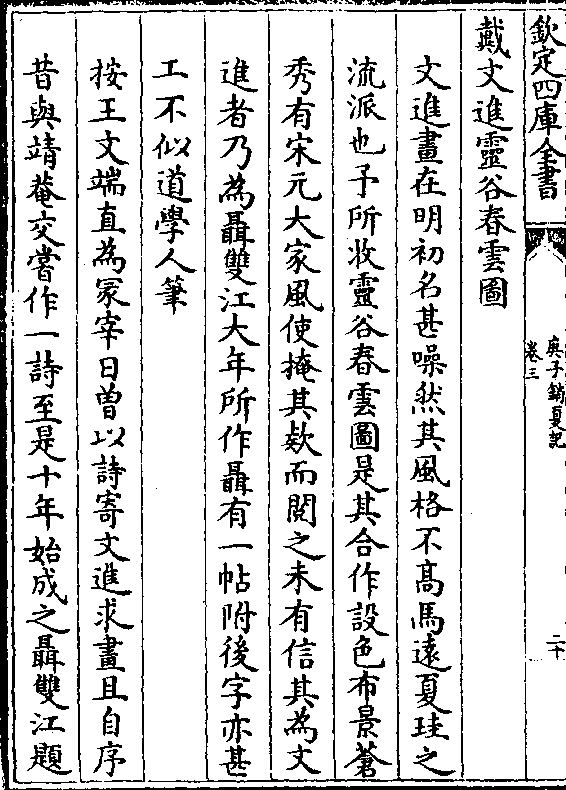 欽定四庫全書
庚子銷夏記
卷三
二十
戴文進靈谷春雲圖
文進畫在明初名甚噪然其風格不髙馬逺夏珪之
流派也予所收靈谷春雲圖是其合作設色布景蒼
秀有宋元大家風使掩其欵而閱之未有信其為文
進者乃為聶雙江大年所作聶有一帖附後字亦甚
工不似道學人筆
按王文端直為冡宰日曽以詩寄文進求畫且自序
昔與靖菴交嘗作一詩至是十年始成之聶雙江題